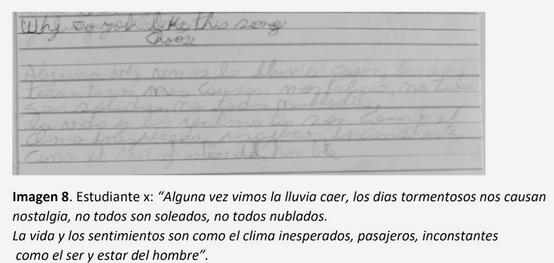 Why do you like this song
choose
Alguna vez vimos la lluvia caer, los dias
tormentosos nos causan nostalgia, no todos
son soleados, no todos nublados.
la vida y los sentimientos son como el
clima inesperados, pasajeros, inconstantes
como el ser y estar del hombre
Imagen 8. Estudiante x: “Alguna vez vimos la lluvia caer, los dias tormentosos nos causan
nostalgia, no todos son soleados, no todos nublados.
La vida y los sentimientos son como el clima inesperados, pasajeros, inconstantes
como el ser y estar del hombre”.